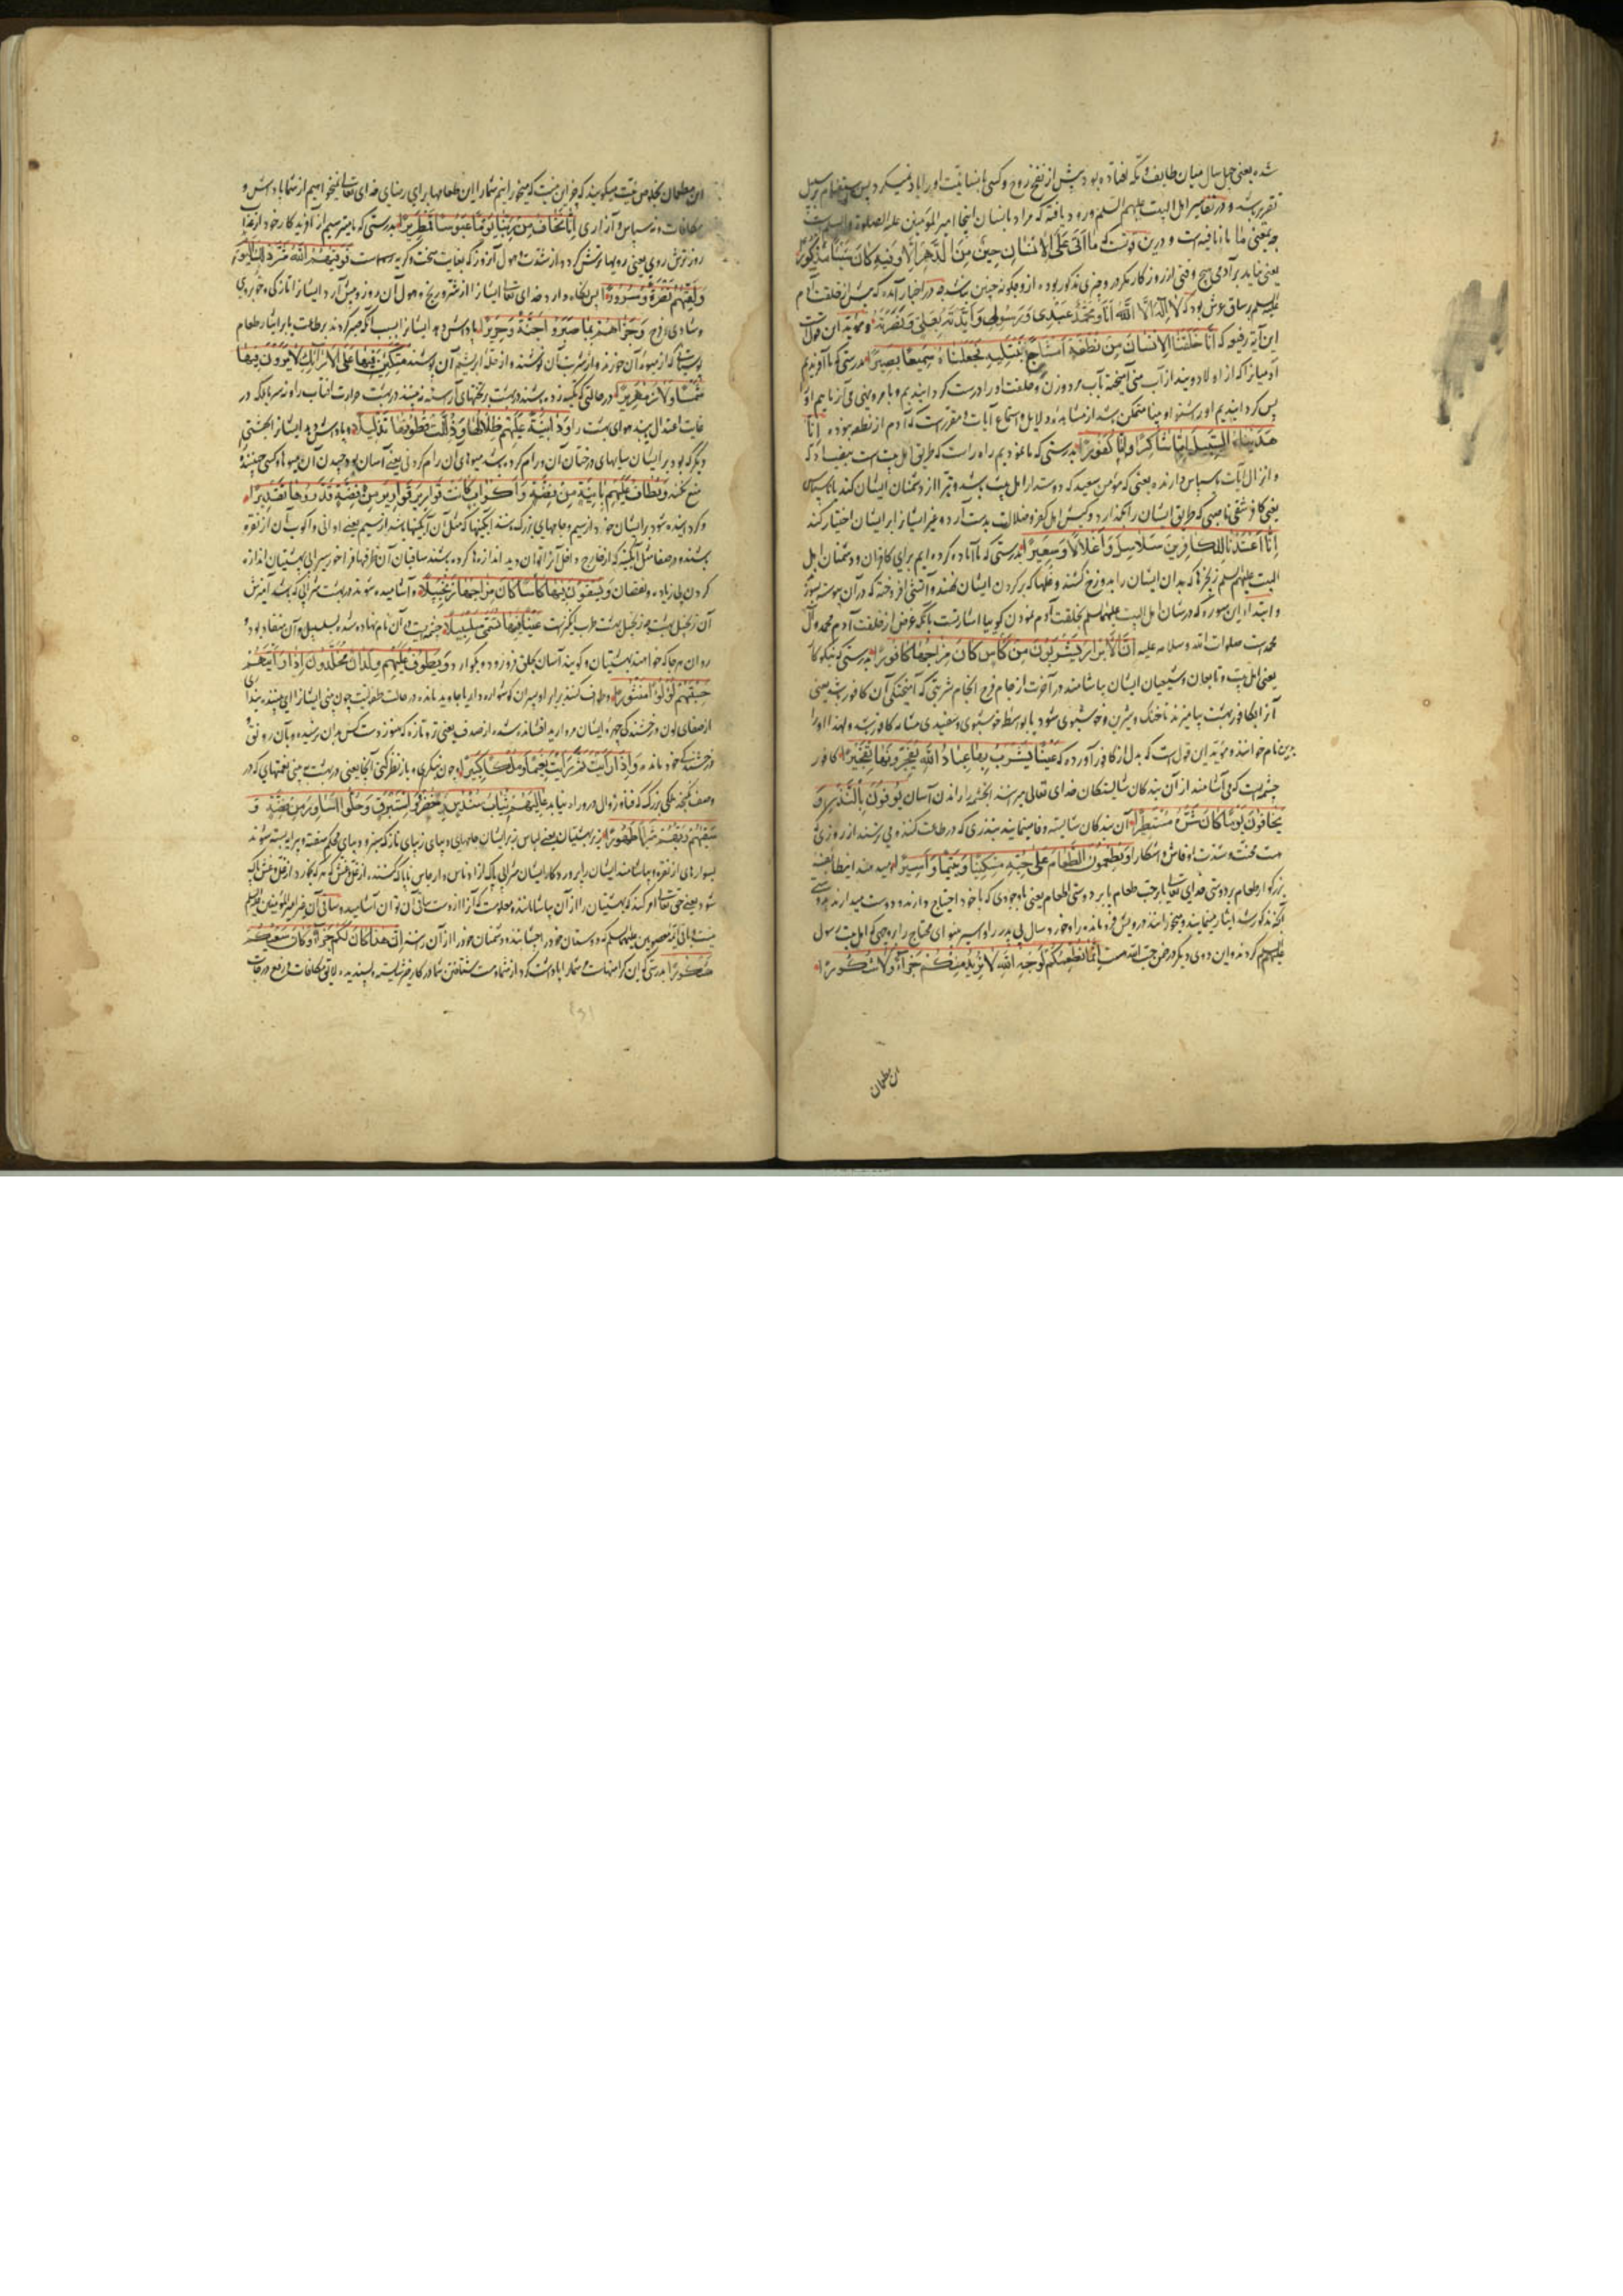 شده یعنی چهل سال میان طایف و مکه افتاده بود پیش از نفخ روح و کسی بانسانیت او را یاد نمیکرد پس استفهام بر سبیل
تقریر باشد و در تفاسیر اهل البیت علیهم السلم ورود یافته که مراد بانسان اینجا امیر المؤمنین علیه الصلوة والسلام است
چه بمعنی ما نافیه است و درین وقت که مَا اَتَىٰ عَلَى الْاِنْسَانِ حِينٌ مِنَ الدَّهْرِ اِلَّا وَفِيهِ كَانَ شَيْئًا مَذْكُورًا
یعنی نیاید بر آدمی هیچ وقتی از روزگار مگر درو چیزی مذکور بوده از و چگونه چنین نباشد و در اخبار آمده که پیش از خلقت آدم
علیه السلم بر ساق عرش بود که لَا اِلٰهَ اِلَّا اللّٰهُ اَنَا وَمُحَمَّدٌ عَبْدِی وَرَسُولِی وَاَیَّدْتُهُ بِعَلِیٍّ وَنَصَرْتُهُ و مؤید این قول است
این آیه رفیعه که اِنَّا خَلَقْنَا الْاِنْسَانَ مِنْ نُطْفَةٍ اَمْشَاجٍ نَبْتَلِيهِ فَجَعَلْنَاهُ سَمِيعًا بَصِيرًا بدرستی که ما آفریدیم
آدمیانرا که از اولاد ویند از آب منی آمیخته بآب مرد و زن و خلقت او را درست گردانیدیم و بامر و نهی می آزماییم او را
پس گردانیدیم او را شنوا و بینا متمکن باشد از مشاهده دلایل و استماع آیات و مقررست که آدم از نطفه نبوده اِنَّا
هَدَيْنَاهُ السَّبِيلَ اِمَّا شَاكِرًا وَاِمَّا كَفُورًا بدرستی که ما نمودیم راه راست که طریق اهل بیت است
واز ال آیات باسپاس دارنده یعنی که مؤمن سعید که دوستدار اهل بیت باشد و تبرا از دشمنان ایشان کند یا ناسپاس
یعنی کافر شقی ناصبی که طریق ایشان را بگذارد و کیش اهل کفر و ضلالت بدست آرد و غیر ایشانرا بر ایشان اختیار کند
اِنَّا اَعْتَدْنَا لِلْكَافِرِينَ سَلَاسِلَ وَاَغْلَالًا وَسَعِيرًا بدرستی که ما آماده کرده ایم برای کافران و دشمنان اهل
البیت علیهم السلم زنجیرها که بدان ایشان را بدوزخ کشند و غلها که بر گردن ایشان نهند و آتشی افروخته که در آن پیوسته بسوزند
وابتداء این سوره که در شان اهل البیت علیهم السلم بخلقت آدم نمودن گوییا اشارتست بانکه غرض از خلقت آدم محمد و آل
محمدست صلوات الله و سلامه علیه اِنَّ الْاَبْرَارَ يَشْرَبُونَ مِنْ كَأْسٍ كَانَ مِزَاجُهَا كَافُورًا بدرستی که نیکوکاران
یعنی اهل بیت و تابعان و شیعیان ایشان بیاشامند در آخرت از جام فرح انجام شربتی که آمیختگی آن کافور باشد یعنی
آنرا بکافور بهشت بیامیزند تا خنک و شیرین و خوشبوی شود یا بواسطه خوشبوی و سفیدی مشابه کافور باشد و لهذا او را
بدین نام خوانند و مؤید این قول است که بدل از کافور آورده که عَيْنًا يَشْرَبُ بِهَا عِبَادُ اللّٰهِ يُفَجِّرُونَهَا تَفْجِيرًا کافور
چشمه ایست که می آشامند از آن بندکان شایستکان خدای تعالی میرانند انچشمه را راندن آسان يُوفُونَ بِالنَّذْرِ وَ
يَخَافُونَ يَوْمًا كَانَ شَرُّهُ مُسْتَطِيرًا آن بندکان شایسته وفا مینمایند بنذری که در طاعت کنند و می ترسند از روزی که
هست محنت و شدت او فاش و آشکارا وَيُطْعِمُونَ الطَّعَامَ عَلَىٰ حُبِّهِ مِسْكِينًا وَيَتِيمًا وَاَسِيرًا و میدهند این طایفه
بزرگوار طعام بر دوستی خدای تعالی یا بر حب طعام یا بر دوستی اطعام یعنی با وجودی که با خود احتیاج دارند و دوست میدارند
آنچه مذکور شد ایثار مینمایند و میخورانند درویش فرومانده را و خورد سال بی پدر را و اسیر بینوای محتاج را بروجهی که اهل بیت رسول
علیهم السلم کردند و این دوی دیگر در ضمن حب الله هست اِنَّمَا نُطْعِمُكُمْ لِوَجْهِ اللّٰهِ لَا نُرِيدُ مِنْكُمْ جَزَاءً وَلَا شُكُورًا
این مطعمان
این مطعمان بخلوص نیت میگویند که جز این نیست که میخورانیم شما را این طعامها برای رضای خدای تعالی نمیخواهیم از شما پاداش و
مکافات و نه سپاس و آزاری اِنَّا نَخَافُ مِنْ رَبِّنَا يَوْمًا عَبُوسًا قَمْطَرِيرًا بدرستی که ما میترسیم از آفریدکار خود از عذاب
روز ترش روی یعنی رویها ترش گردد از شدت و هول آنروز که بغایت سخت و کریه است فَوَقٰىهُمُ اللّٰهُ شَرَّ ذٰلِكَ الْيَوْمِ
وَلَقّٰىهُمْ نَضْرَةً وَسُرُورًا پس نگاه دارد خدای تعالی ایشانرا از شر و رنج و هول آن روز و پیش آرد ایشانرا تازگی و خوبروی
و شادی و فرح وَجَزٰىهُمْ بِمَا صَبَرُوا جَنَّةً وَحَرِيرًا پاداش دهد ایشانرا بسبب آنکه صبر کردند بر طاعت یا بر ایثار طعام
بوستانی که از میوه آن خورند و از شربت آن نوشند و از حله ابریشم آن پوشند مُتَّكِئِينَ فِيهَا عَلَى الْاَرَائِكِ لَا يَرَوْنَ فِيهَا
شَمْسًا وَلَا زَمْهَرِيرًا در حالتی که تکیه زده باشند در بهشت بر تختهای آراسته نه بینند در بهشت حرارت افتاب را و نه سرما بلکه در
غایت اعتدال بیند هوای بهشت را وَدَانِيَةً عَلَيْهِمْ ظِلَالُهَا وَذُلِّلَتْ قُطُوفُهَا تَذْلِيلًا و پاداش دهد ایشانرا بجنتی
دیگر که بود بر ایشان سایهای درختان آن و رام کرده باشد میوهای آن رام کردنی یعنی آسان بود چیدن آن میوها و کسی چیننده را
منع نکند وَيُطَافُ عَلَيْهِمْ بِاٰنِيَةٍ مِنْ فِضَّةٍ وَاَكْوَابٍ كَانَتْ قَوَارِيرَ قَوَارِيرَ مِنْ فِضَّةٍ قَدَّرُوهَا تَقْدِيرًا
و گردانیده شود بر ایشان خود از سیم و جامهای بزرگ باشند آبگینها که مثل آن آبگینها باشد از سیم یعنی اوانی و اکواب آن از نقره
باشند و در صفا مثل آبگینه که از خارج داخل آنرا توان دید اندازها کرده باشند ساقیان آن ظرفها فراخور سیرابی بهشتیان اندازه
کردن بی زیاده و نقصان وَيُسْقَوْنَ فِيهَا كَأْسًا كَانَ مِزَاجُهَا زَنْجَبِيلًا و آشامیده شوند در بهشت شرابی که باشد آمیزش
آن زنجبیل بهشت چه زنجبیل بهشت طرب انگیزست عَيْنًا فِيهَا تُسَمّٰى سَلْسَبِيلًا چشمه ایست که آن نام نهاده شده بسلسبیل و آن منقاد بود و
روان هرجا که خواهند بهشتیان و گویند آسان بحلق فرو رود و گوارد وَيَطُوفُ عَلَيْهِمْ وِلْدَانٌ مُخَلَّدُونَ اِذَا رَاَيْتَهُمْ
حَسِبْتَهُمْ لُؤْلُؤًا مَنْثُورًا و طواف کنند بر ابرار پسران گوشواره دار یا جاوید مانده در حالت طفولیت چون بینی ایشانرا ای بیننده پنداری
از صفای لون و درخشندگی چهره ایشان مروارید افشانده شده از صدف یعنی تر و تازه که هنوز دست کس بدان نرسیده و بآن رونق و
درخشندگی خود مانده وَاِذَا رَاَيْتَ ثَمَّ رَاَيْتَ نَعِيمًا وَمُلْكًا كَبِيرًا و چون بنگری و باز نظر کنی آنجا یعنی در بهشت بینی نعمتهای که در
وصف نگنجد و ملکی بزرگ که فنا و زوال درو راه نیابد عَالِيَهُمْ ثِيَابُ سُنْدُسٍ خُضْرٌ وَاِسْتَبْرَقٌ وَحُلُّوا اَسَاوِرَ مِنْ فِضَّةٍ وَ
سَقٰىهُمْ رَبُّهُمْ شَرَابًا طَهُورًا زبر بهشتیان یعنی لباس زبر ایشان جامهای دیبای زیبای نازک سبز و دیبای محکم سفت و پیرایه بسته شوند
بسوارهای از نقره و بیاشامند ایشان را پروردگار ایشان شرابی پاک از ادناس و ارجاس ناپاک کننده از غل و غش که هرکه بخورد از غل و غش پاک
شود یعنی حق تعالی امر کند که بهشتیان را از آن بیاشامانند و معلومست که آنرا از دست ساقی آن توان آشامید و ساقی آن بجز امیر المؤمنین علیه السلم
نیست و باقی ائمه معصومین علیهم السلم که دوستان خود را بچشانند و دشمنان خود را از آن رانند اِنَّ هٰذَا كَانَ لَكُمْ جَزَاءً وَكَانَ سَعْيُكُمْ
مَشْكُورًا بدرستی که این کرامتها هست شما را پاداشت کردار شما و هست شتافتن شما در کار خیر شایسته و پسندیده لایق مکافات و رفع درجات